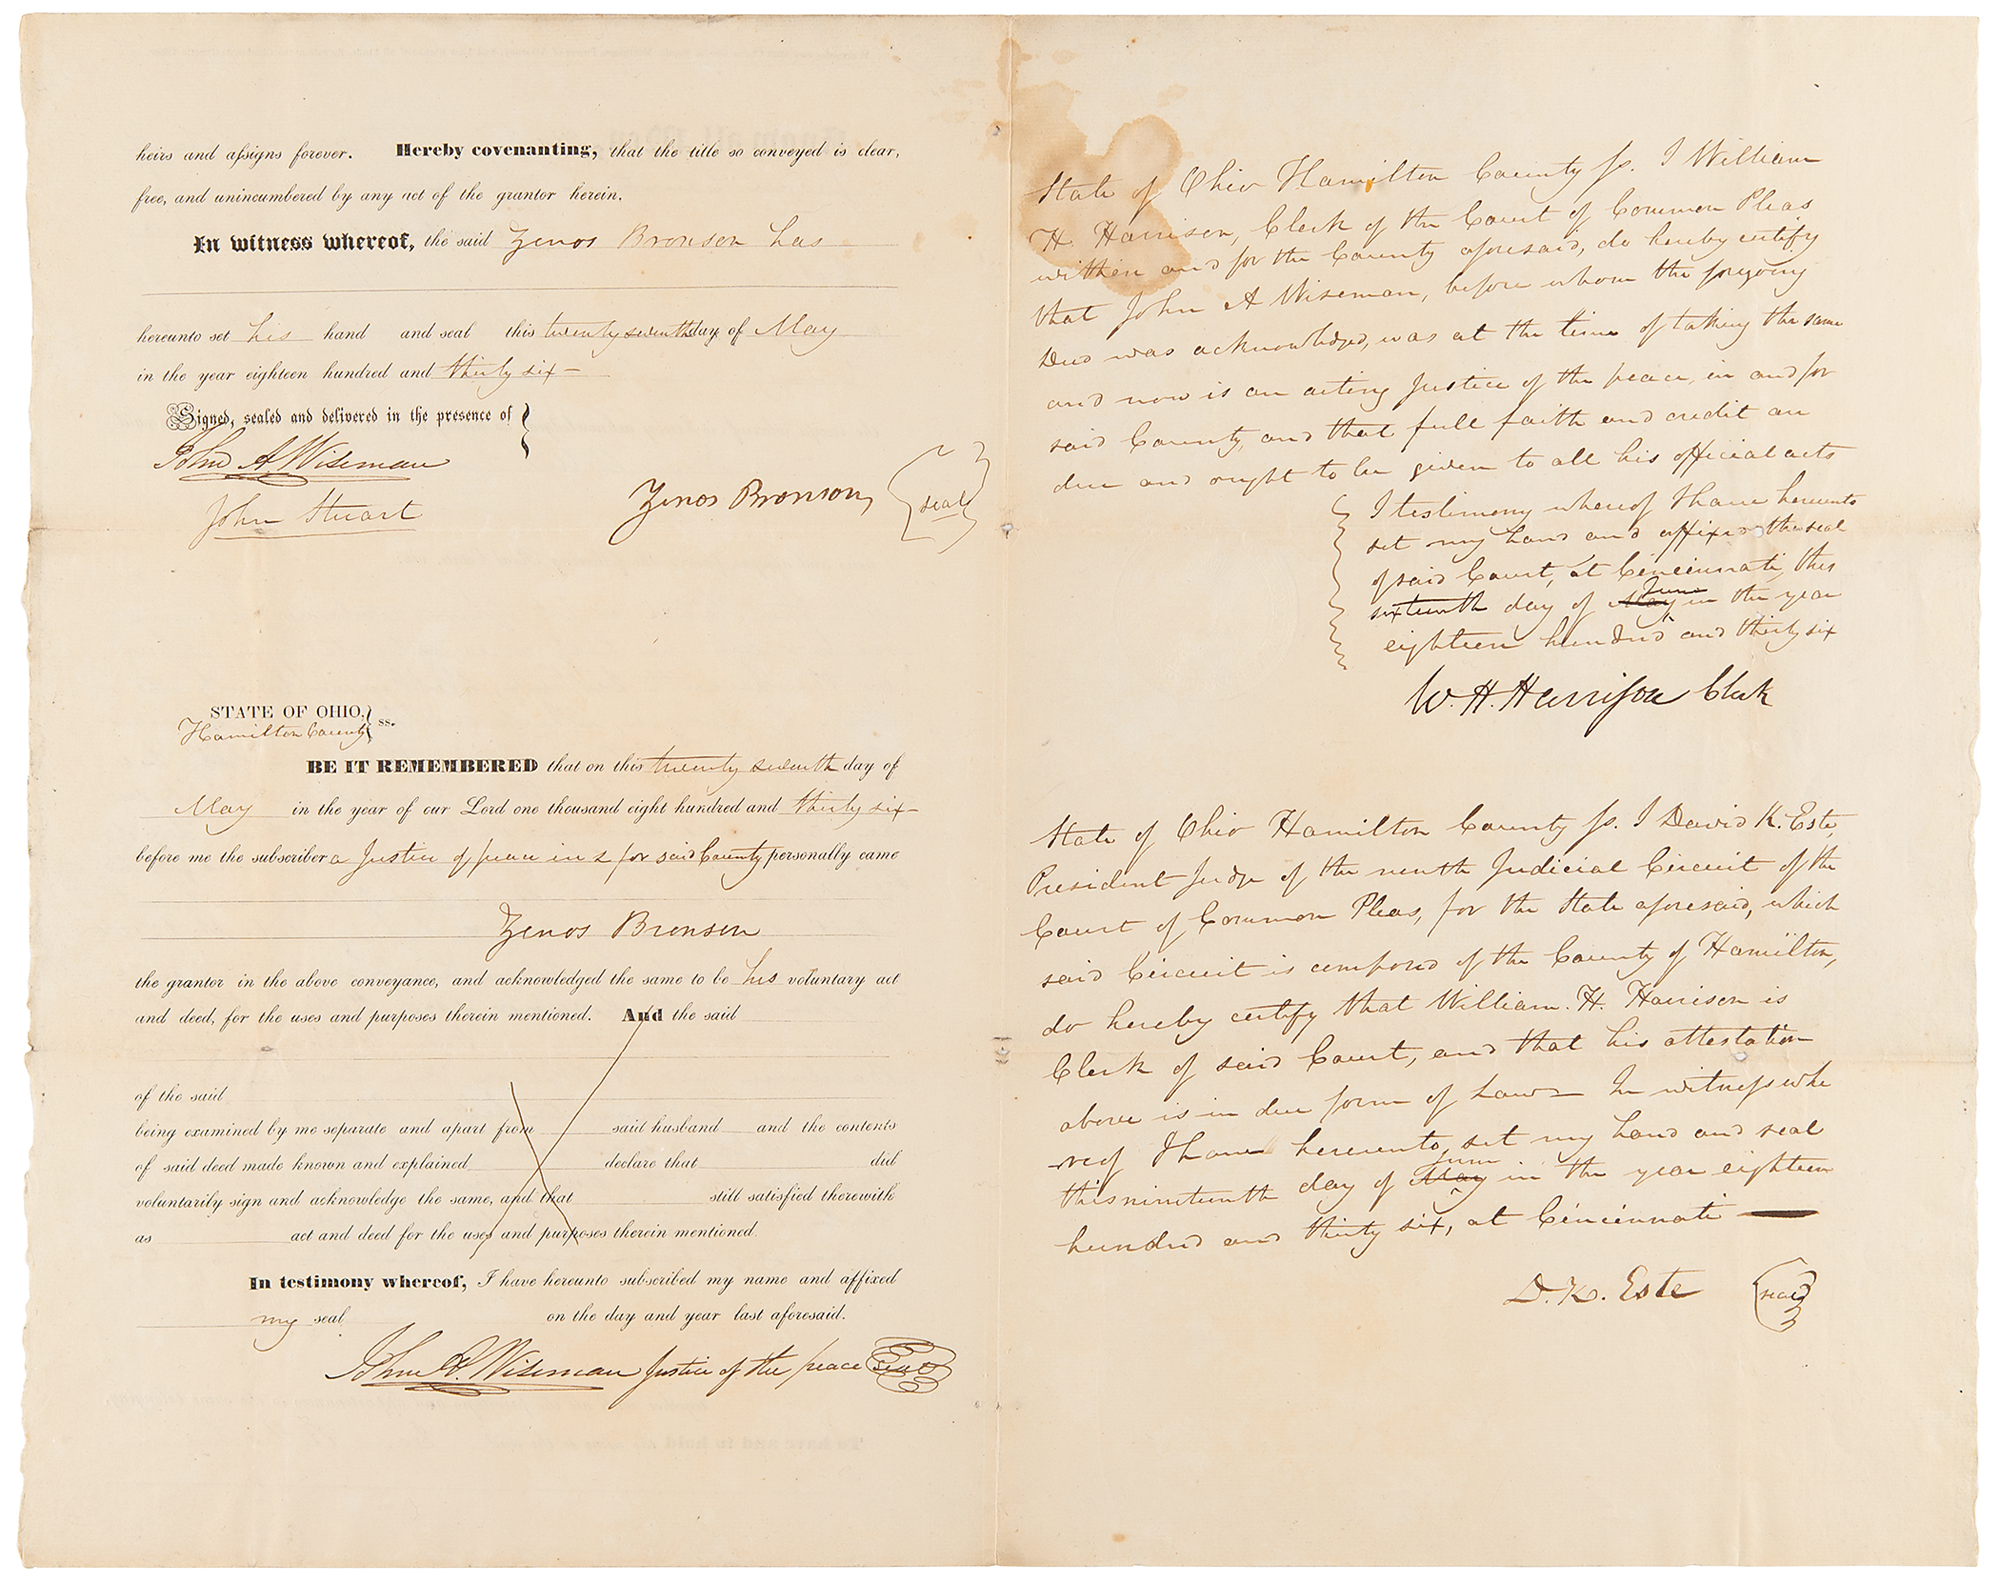 heirs and aſsigns forever. Hereby covenanting, that the title so conveyed is clear,
free, and unincumbered by any act of the grantor herein.
In witness whereof, the said Zenos Bronson has
hereunto set his hand and seal this twenty seventh day of May
in the year eighteen hundred and thirty six –
Signed, sealed and delivered in the presence of }
John A. Wiseman
John Stuart
Zenos Bronson, {seal}
STATE OF OHIO, } ss.
Hamilton County
BE IT REMEMBERED that on this twenty seventh day of
May in the year of our Lord one thousand eight hundred and thirty six –
before me the subscriber a Justice of peace in & for said County personally came
Zenos Bronson
the grantor in the above conveyance, and acknowledged the same to be his voluntary act
and deed, for the uses and purposes therein mentioned. And the said
of the said
being examined by me separate and apart from said husband and the contents
of said deed made known and explained declare that did
voluntarily sign and acknowledge the same, and that still satisfied therewith
as act and deed for the uses and purposes therein mentioned.
In testimony whereof, I have hereunto subscribed my name and affixed
my seal on the day and year last aforesaid.
John A. Wiseman Justice of the peace seal
State of Ohio Hamilton County ſs. I William
H. Harrison, Clerk of the Court of Common Pleas
within and for the County aforesaid, do hereby certify
that John A Wiseman, before whom the foregoing
Deed was acknowledged, was at the time of taking the same
and now is an acting Justice of the peace, in and for
said County, and that full faith and credit are
due and ought to be given to all his official acts
I testimony whereof I have hereunto
set my hand and affixed the seal
of said Court, at Cincinnati, this
sixteenth day of May June in the year
eighteen hundred and thirty six
W. H. Harriſon Clerk
State of Ohio Hamilton County ſs. I David K. Este,
President Judge of the ninth Judicial Circuit of the
Court of Common Pleas, for the State aforesaid, which
said Circuit is composed of the County of Hamilton,
do hereby certify that William. H. Harrison is
Clerk of said Court, and that his attestation
above is in due form of Law – In witneſs whe
reof I have hereunto set my hand and seal
this nineteenth day of May June in the year eighteen
hundred and thirty six, at Cincinnati —
D. K. Este {seal}